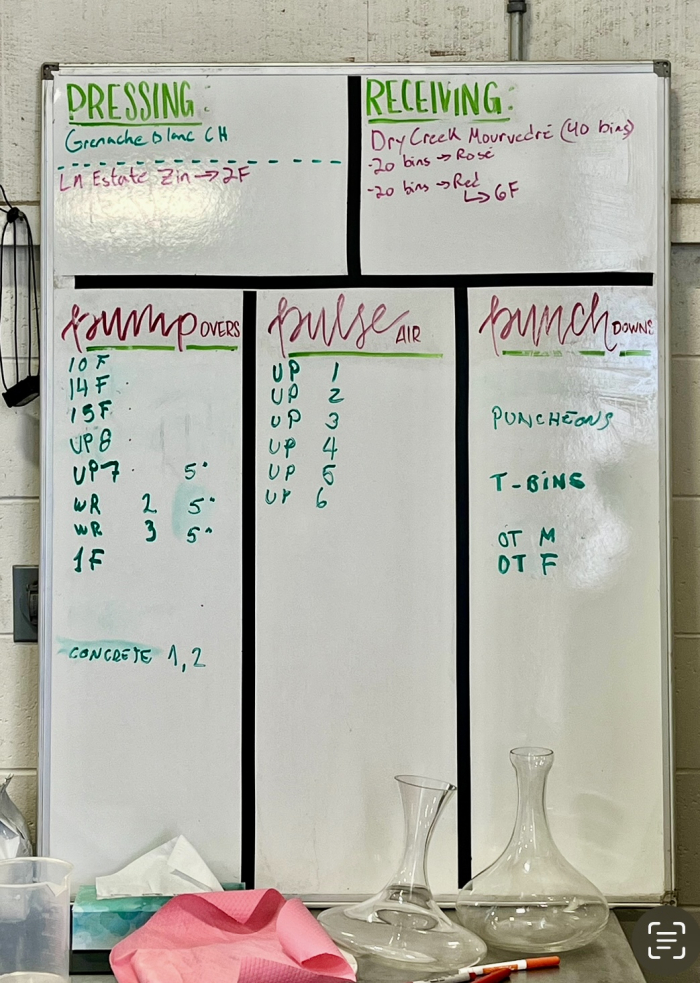 PRESSING:
Grenache Blanc CH
LN Estate Zin → 2F
RECEIVING:
Dry Creek Mourvedré (40 bins)
-20 bins → Rosé
-20 bins → Red
↳ 6F
pump OVERS
10 F
14 F
15 F
UP 8
UP 7 5"
WR 2 5"
WR 3 5"
1F
CONCRETE 1, 2
pulse AIR
UP 1
UP 2
UP 3
UP 4
UP 5
UP 6
punch DOWNS
PUNCHEONS
T-BINS
OT M
OT F